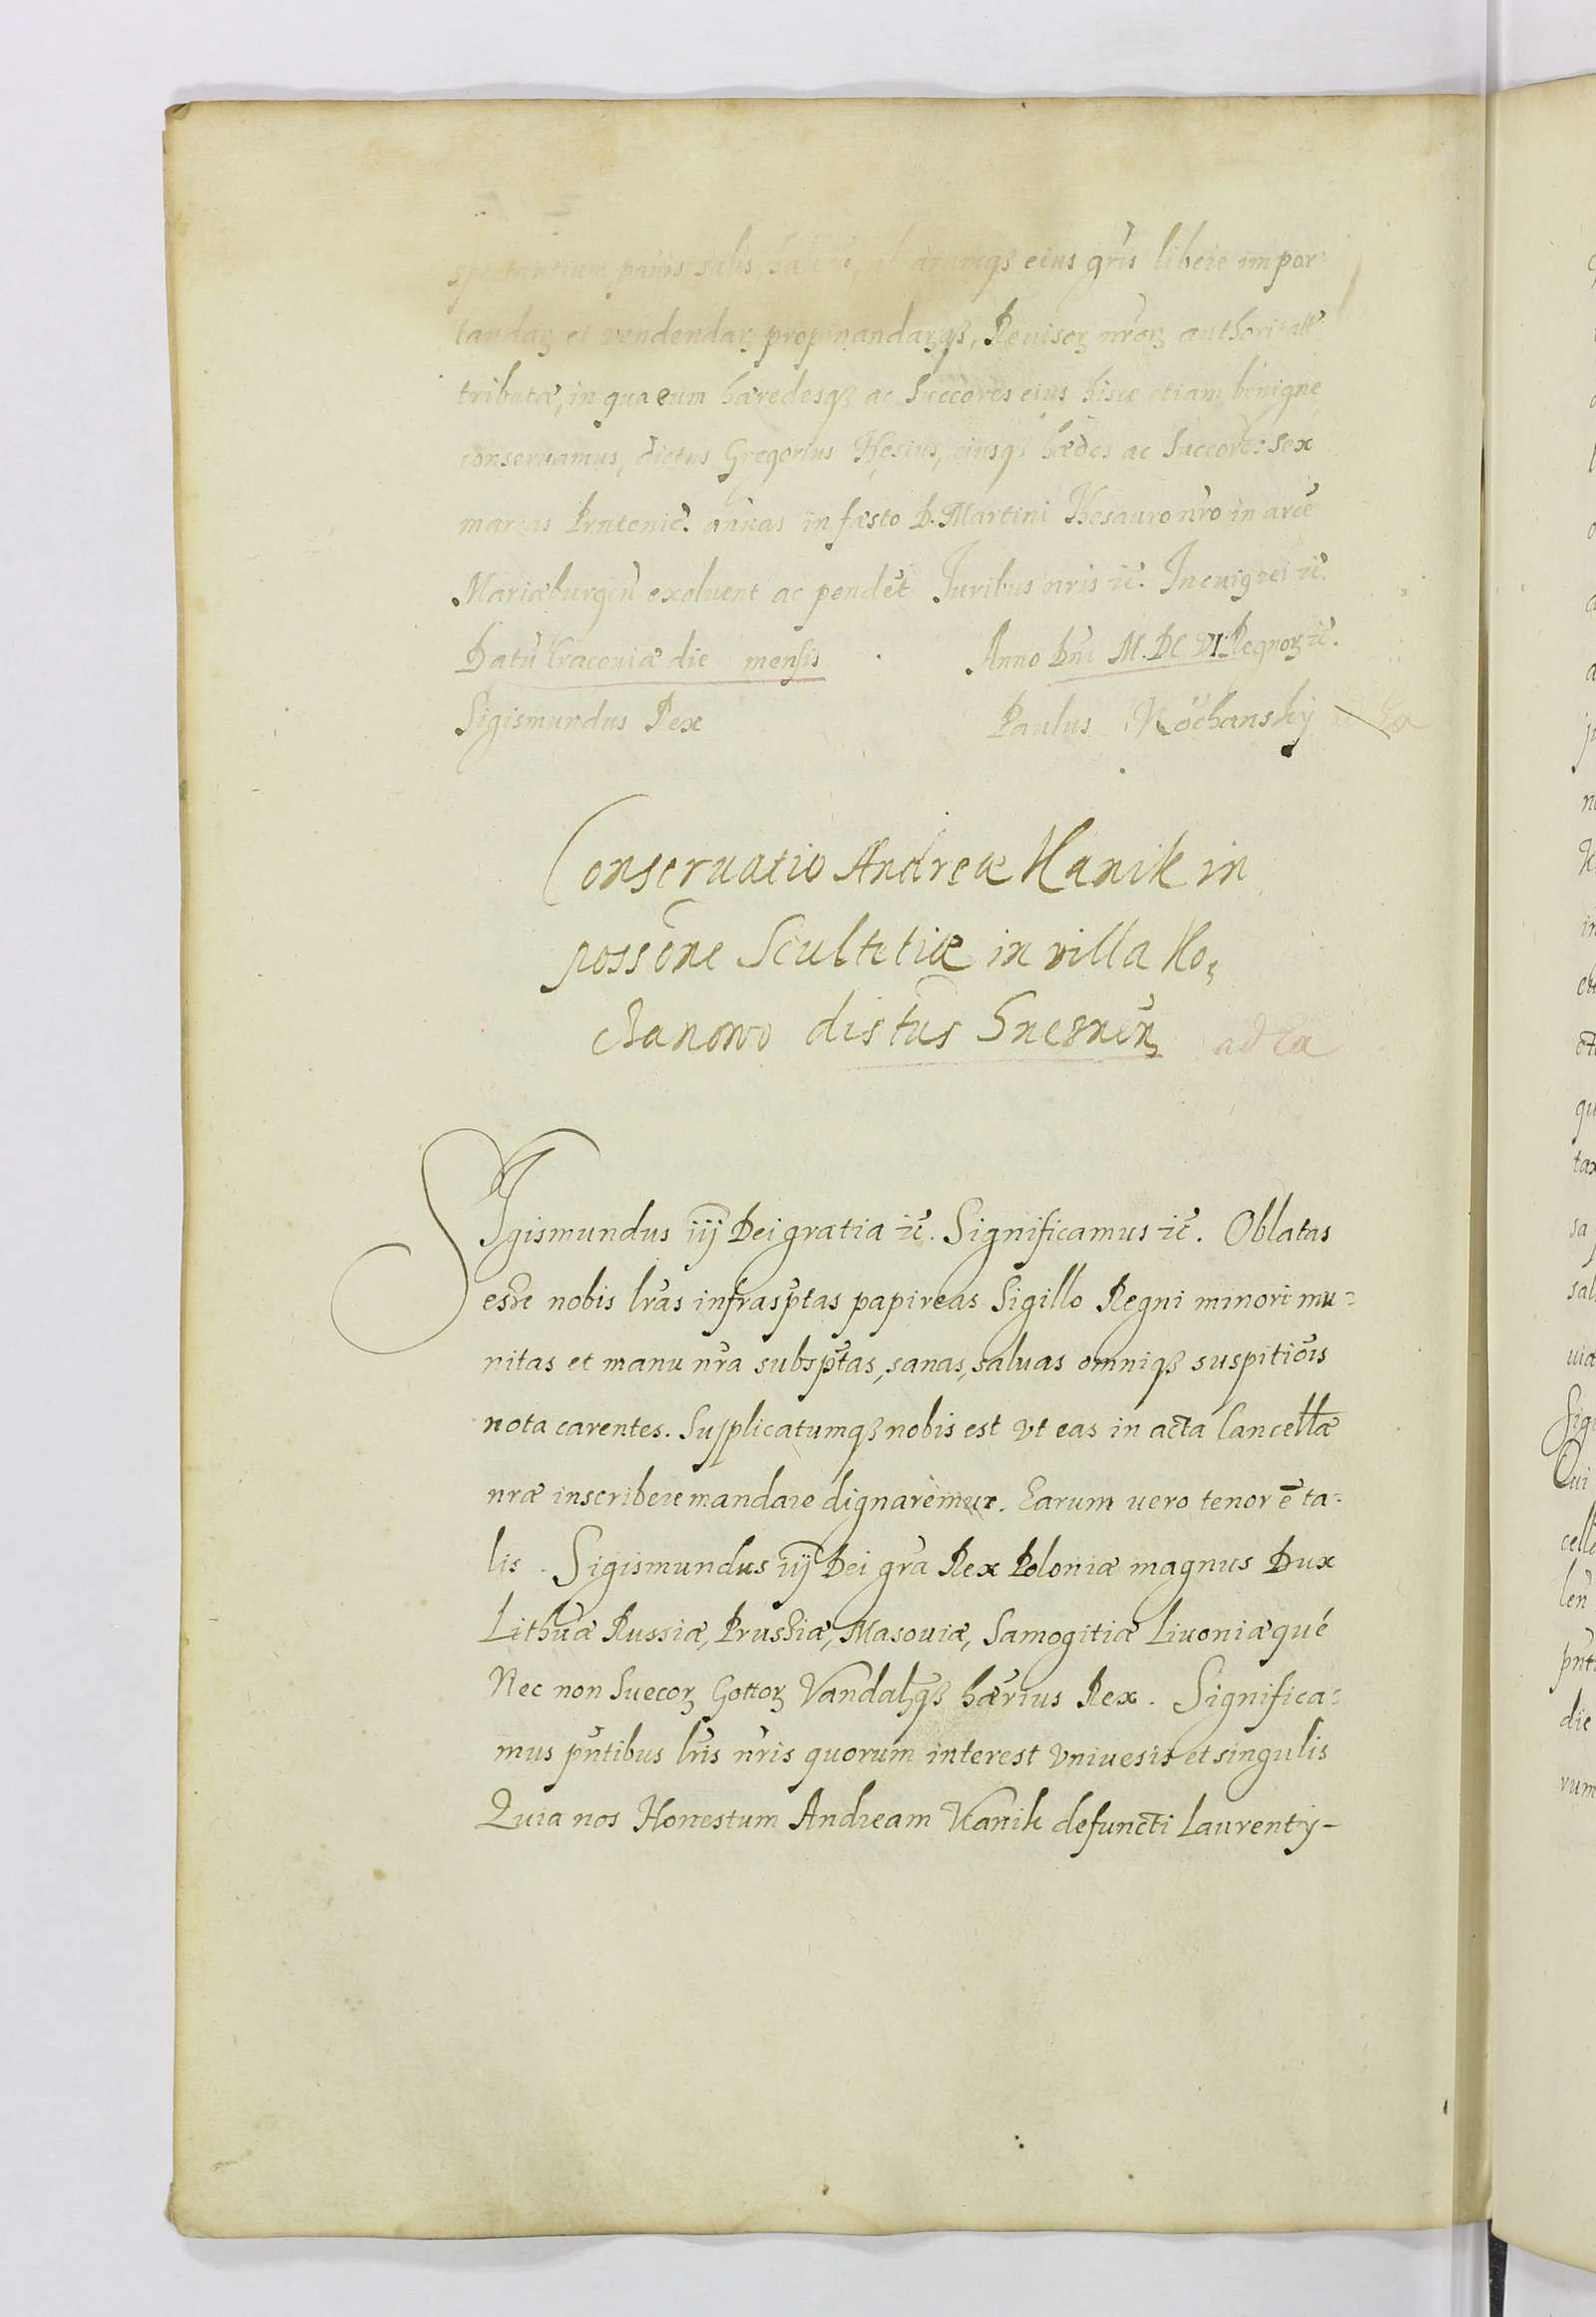 spectantium panis salis, eiusqꝫ gr̃is libere impor:
tandaꝝ et vendendaꝝ propinandaꝝqꝫ, Reuisoꝝ nr̃oꝝ authoritate
tributæ, in qua eum hæredesqꝫ ac Succores eius hisce etiam benigne
conseruamus, dictus Gregorius Hosius, eiusqꝫ hædes ac Succores sex
marcas Prutenic̃. añuas in fæsto D. Martini Thesauro nr̃o in arce
Mariæburgeñ exoluent ac pendẽt Juribus nr̃is ic̃. In cuiq rei ic̃.
Datũ Cracouiæ die mensis . Anno Dñi M.DC VI. Regnoꝝ ic̃.
Sigismundus Rex Paulus Kochansky
Conseruatio Andreæ Kanik in
possõne Scultetiæ in villa Ko,
chanowo distũs Gnesneñ ad ca
Sigismundus iij Dei gratia ic̃. Significamus ic̃. Oblatas
esse nobis lr̃as infrasp̃tas papireas Sigillo Regni minori mu:
nitas et manu nr̃a subsp̃tas, sanas, saluas omniqꝫ suspitiõis
nota carentes. Supplicatumqꝫ nobis est vt eas in acta Cancellæ
nræ inscribere mandare dignaremur. Earum uero tenor ẽ ta:
lis. Sigismundus iij Dei gr̃a Rex Poloniæ magnus Dux
Lithuæ Russiæ, Prussiæ, Masouiæ, Samogitiæ Liuoniæqué
Nec non Suecoꝝ Gottoꝝ Vandalꝝqꝫ hær̃ius Rex. Significa:
mus pñtibus lr̃is nr̃is quorum interest vniuesis et singulis
Quia nos Honestum Andream Kanik defuncti Laurentij-